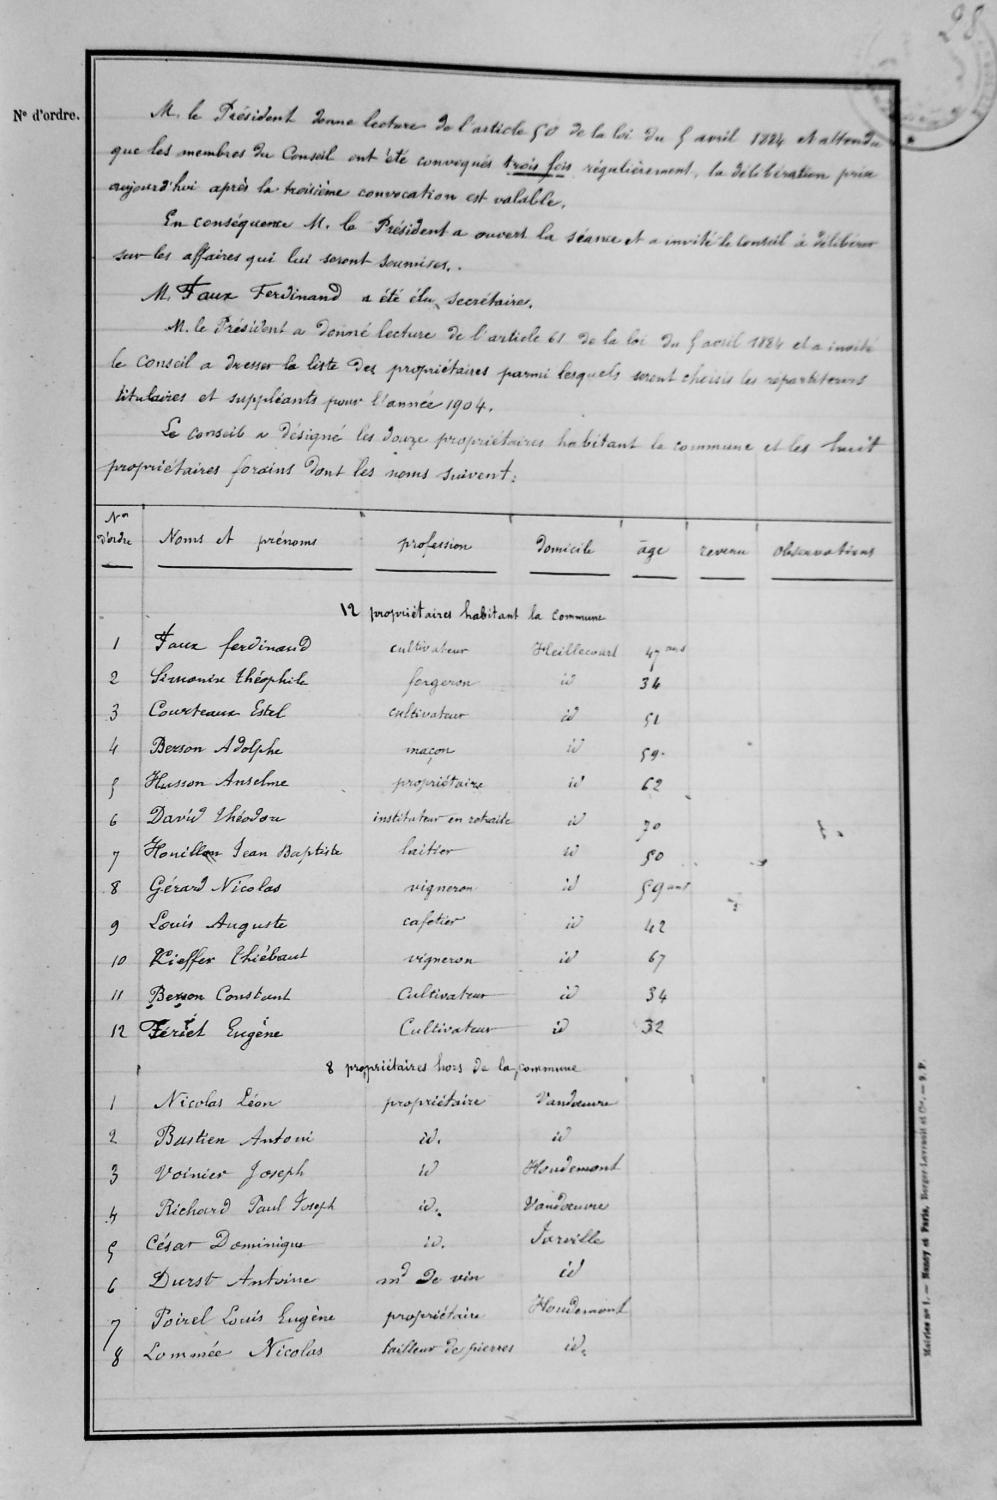 28
Nº d'ordre.
M. le Président donne lecture de l'article 50 de la loi du 5 avril 1884 et attendu
que les membres du Conseil ont été convoqués trois fois régulièrement, la délibération prise
aujourd'hui après la troisième convocation est valable.
En conséquence M. le Président a ouvert la séance et a invité le Conseil à délibérer
sur les affaires qui lui seront soumises.
M. Faux Ferdinand a été élu secrétaire.
M. le Président a donné lecture de l'article 61 de la loi du 5 avril 1884 et a invité
le Conseil a dresser la liste des propriétaires parmi lesquels seront choisis les répartiteurs
titulaires et suppléants pour l'année 1904.
Le Conseil a désigné les douze propriétaires habitant la commune et les huit
propriétaires forains dont les noms suivent:
Nos d'ordre Noms et prénoms profession domicile âge revenu observations
12 propriétaires habitant la commune
1 Faux ferdinand cultivateur Heillecourt 47 ans
2 Simonin théophile forgeron id 34
3 Courteaux Estel cultivateur id 51
4 Berson Adolphe maçon id 59
5 Husson Anselme propriétaire id 62
6 David théodore instituteur en retraite id 70
7 Houillon Jean Baptiste laitier id 50
8 Gérard Nicolas vigneron id 59 ans
9 Louis Auguste cafetier id 42
10 Kieffer Thiébaut vigneron id 67
11 Berson Constant Cultivateur id 34
12 Fériet Eugène Cultivateur id 32
8 propriétaires hors de la commune
1 Nicolas Léon propriétaire Vandœuvre
2 Bastien Antoni id. id
3 Voinier Joseph id Houdemont
4 Richard Paul Joseph id. Vandœuvre
5 César Dominique id. Jarville
6 Durst Antoine md de vin id
7 Poirel Louis Eugène propriétaire Houdemont
8 Lommée Nicolas tailleur de pierres id.
Mairies nº 1. — Nancy et Paris, Berger-Levrault et Cie. — 9. P.